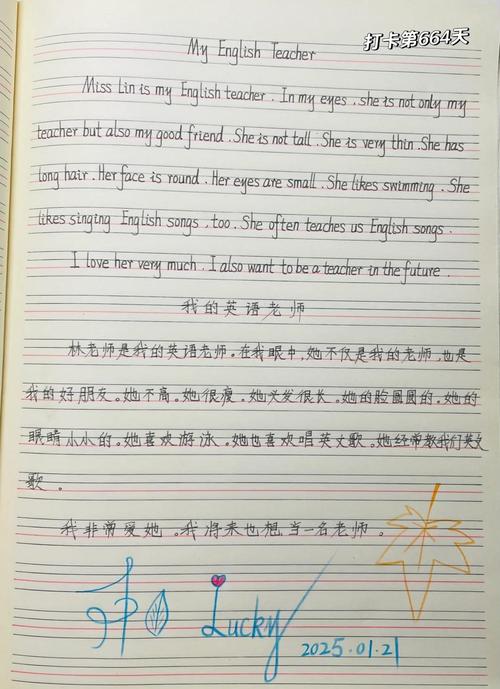 打卡第664天
My English Teacher
Miss Lin is my English teacher. In my eyes, she is not only my
teacher but also my good friend. She is not tall. She is very thin. She has
long hair. Her face is round. Her eyes are small. She likes swimming. She
likes singing English songs, too. She often teaches us English songs.
I love her very much. I also want to be a teacher in the future.
我的英语老师
林老师是我的英语老师。在我眼中,她不仅是我的老师,也是
我的好朋友。她不高。她很瘦。她头发很长。她的脸圆圆的。她的
眼睛小小的。她喜欢游泳。她也喜欢唱英文歌。她经常教我们英文
歌。
我非常爱她。我将来也想当一名老师。
Lucky
2025.01.21